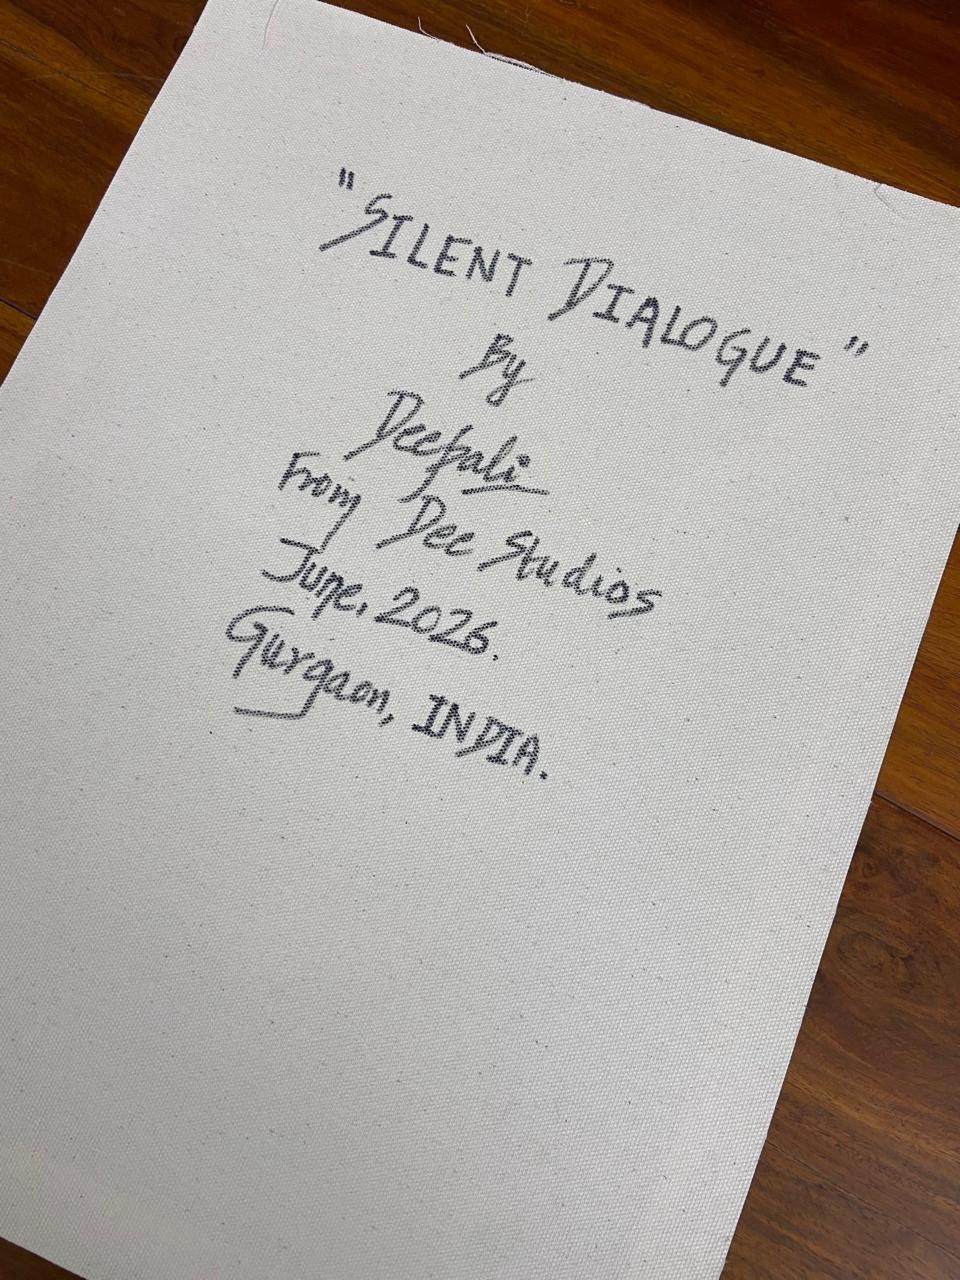 "SILENT DIALOGUE"
By
Deepali
From Dee Studios
June, 2026.
Gurgaon, INDIA.